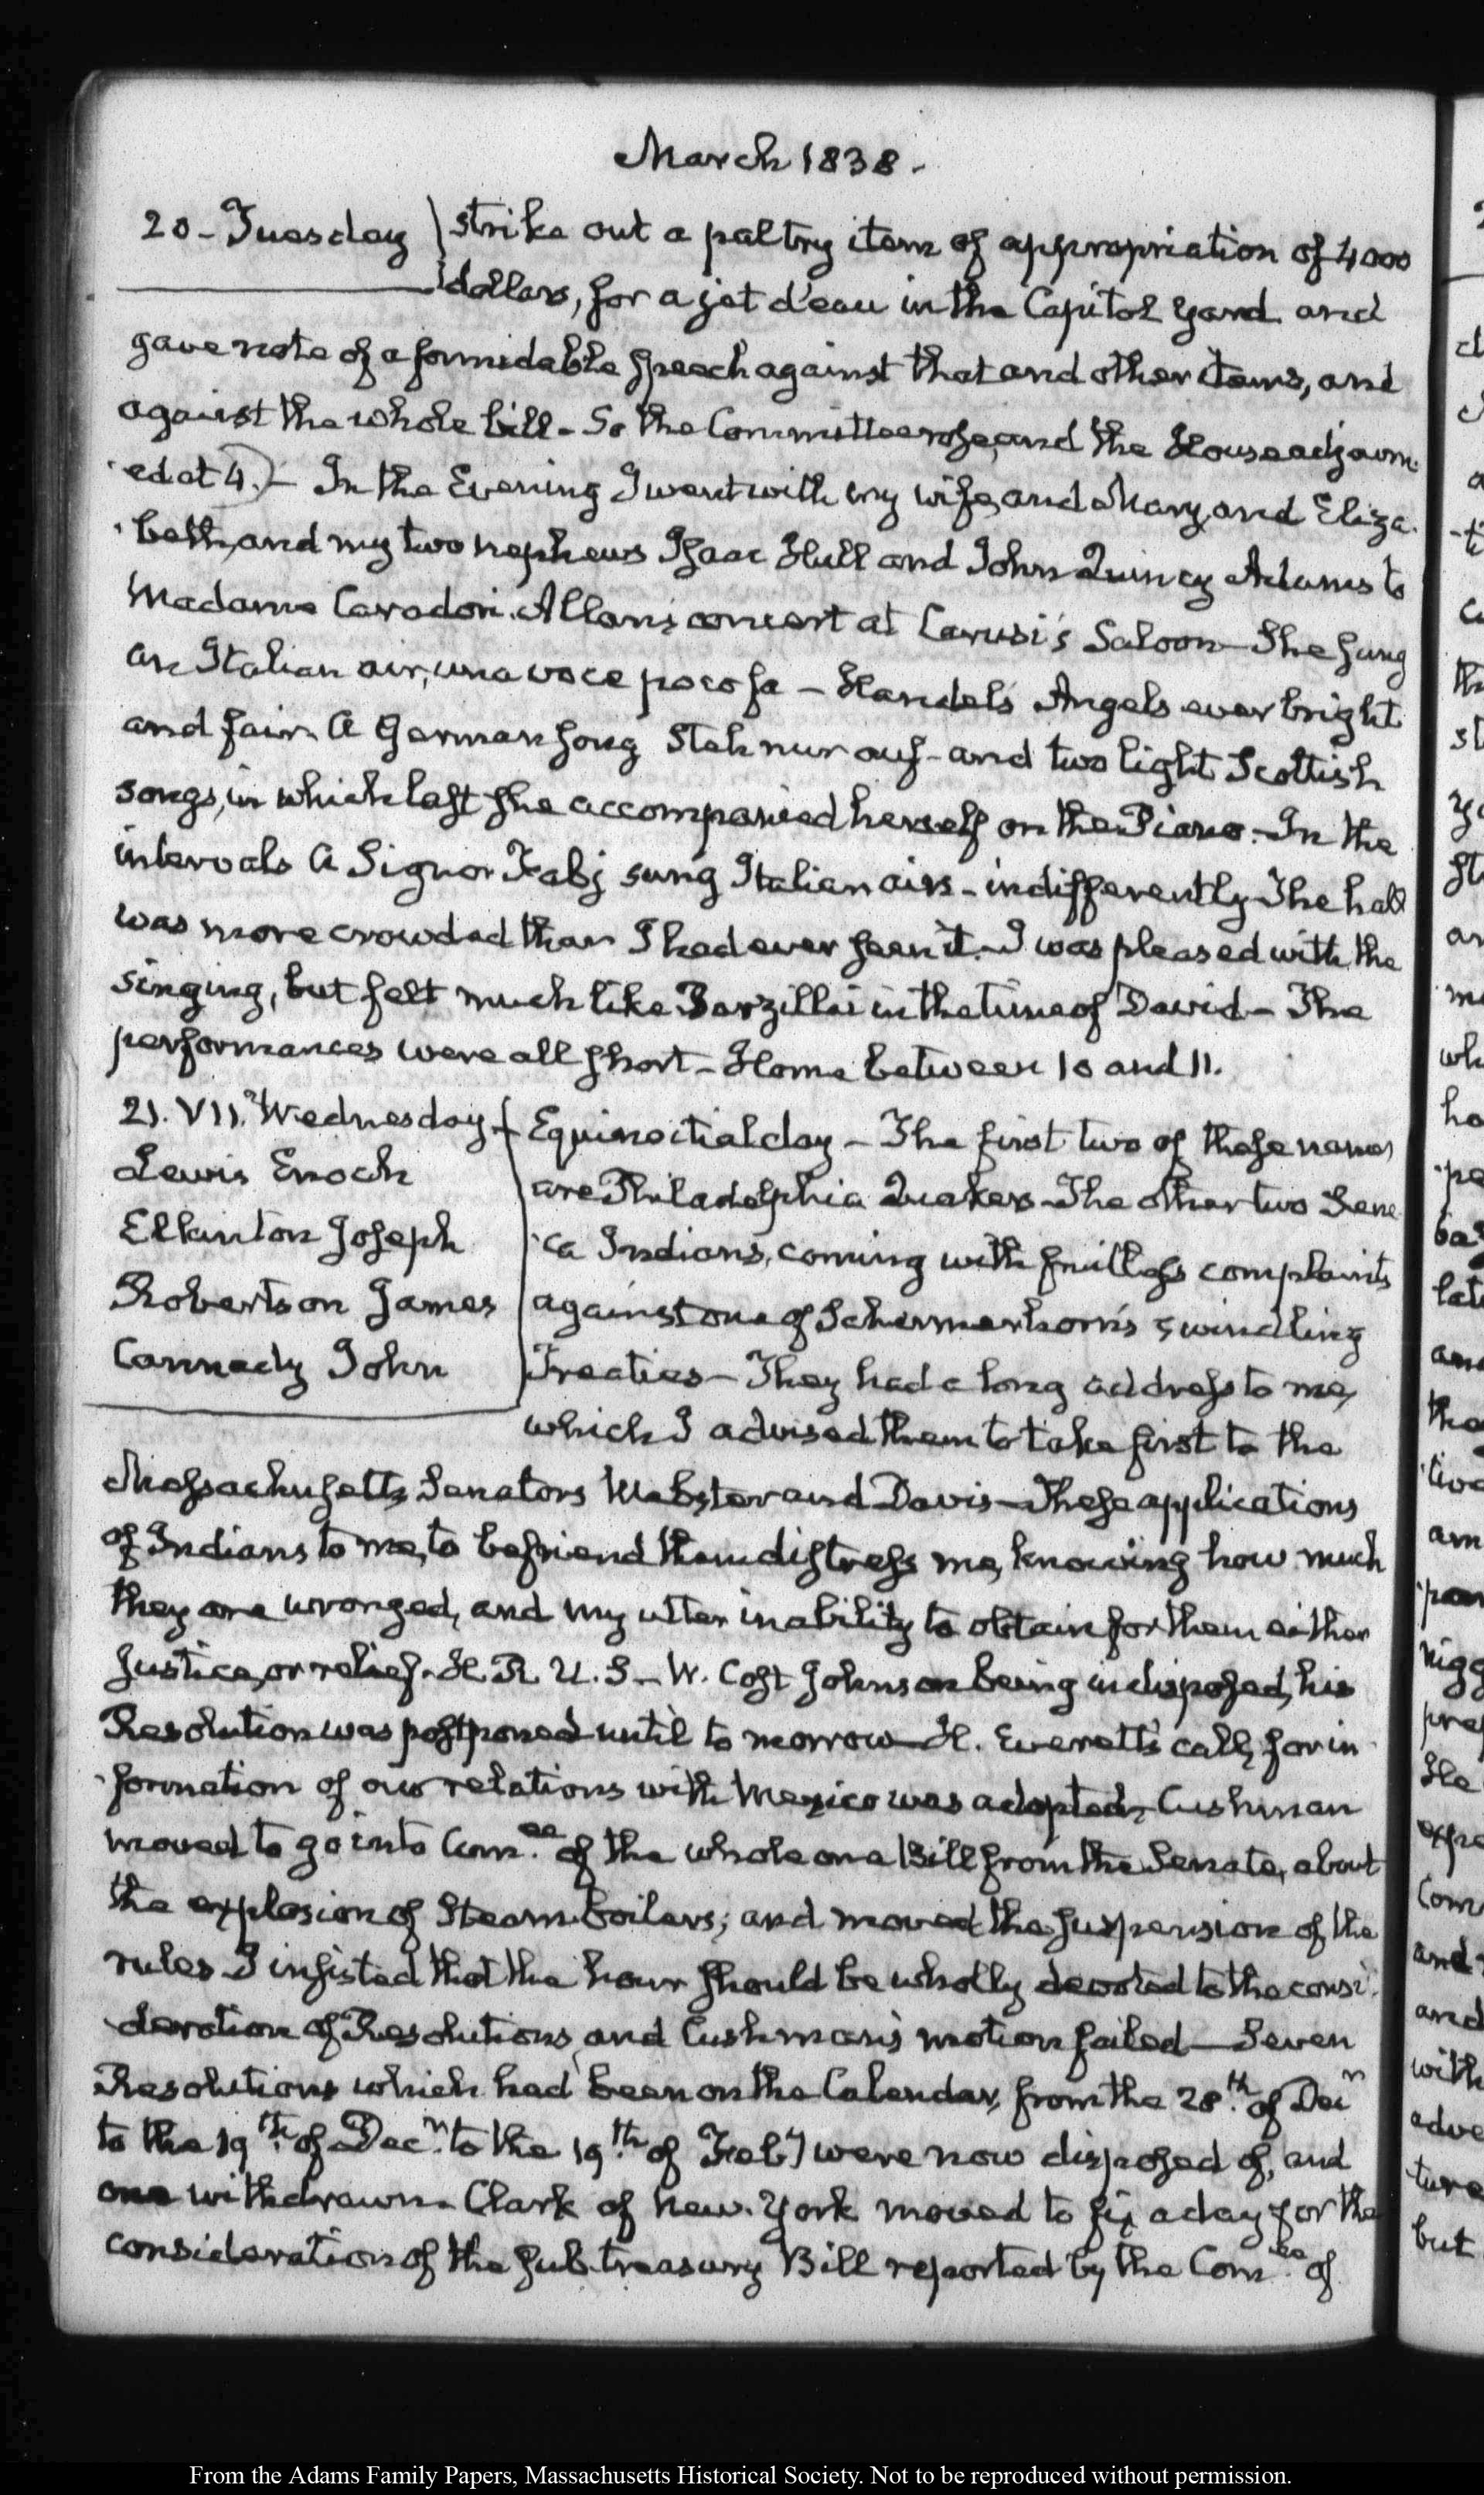 March 1838.
20 - Tuesday strike out a paltry item of appropriation of 4000
dollars, for a jet d'eau in the Capitol yard and
gave note of a formidable speech against that and other items, and
against the whole bill - So the Committee rose, and the House adjourn-
-ed at 4.) - In the Evening I went with my wife, and Mary, and Eliza-
-beth, and my two nephews Isaac Hull and John Quincy Adams to
Madame Caradori Allan's concert at Carusi's Saloon - She sung
an Italian air, una voce poco fa - Handel's Angels ever bright
and fair. A German song Steh nur auf - and two light Scottish
songs, in which last she accompanied herself on the Piano. - In the
intervals a Signor Fabj sung Italian airs - indifferently - The hall
was more crowded than I had ever seen it. - I was pleased with the
singing, but felt much like Barzillai in the time of David - The
performances were all short - Home between 10 and 11.
21. VII. Wednesday
Lewis Enoch
Elkinton Joseph
Robertson James
Cannedy John
Equinoctial day - The first two of these names
are Philadelphia Quakers - The other two Sene-
-ca Indians, coming with fruitless complaints
against one of Schermerhorn's swindling
Treaties - They had a long address to me,
which I advised them to take first to the
Massachusetts Senators Webster and Davis - These applications
of Indians to me, to befriend them distress me, knowing how much
they are wronged, and my utter inability to obtain for them either
justice, or relief. H. R. U. S. - W. Cost Johnson being indisposed, his
Resolution was postponed until to morrow - H. Everett's call, for in-
-formation of our relations with Mexico was adopted, Cushman
moved to go into Comee. of the whole on a Bill from the Senate, about
the explosion of Steam-boilers; and moved the suspension of the
rules - I insisted that the hour should be wholly devoted to the consi-
-deration of Resolutions, and Cushman's motion failed - Seven
Resolutions which had been on the Calendar, from the 28th. of Decr
to the 19th. of Decr. to the 19th. of Feby were now disposed of, and
one withdrawn. Clark of New-York moved to fix a day for the
consideration of the sub-treasury Bill reported by the Comee. of
From the Adams Family Papers, Massachusetts Historical Society. Not to be reproduced without permission.